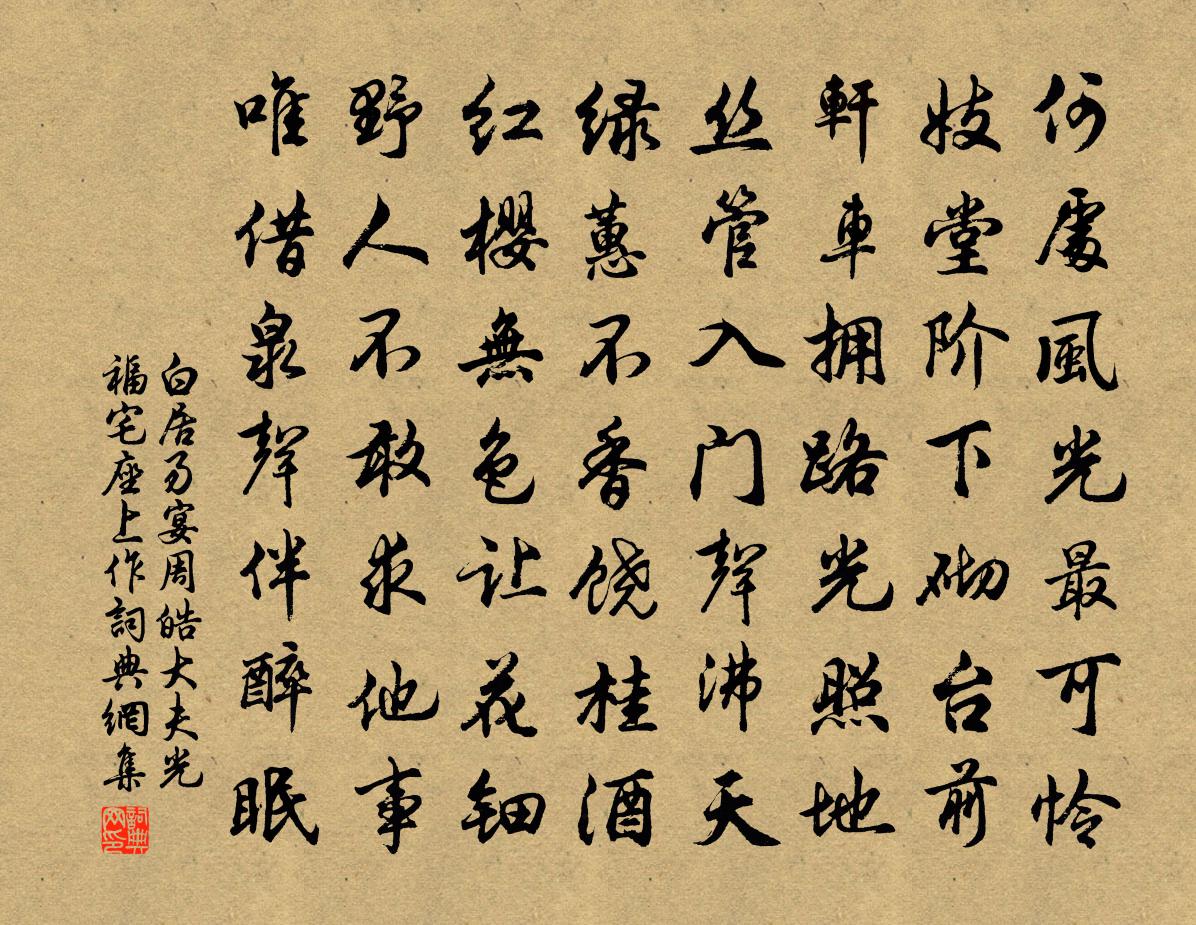 何處風光最可怜
妓堂阶下砌台前
軒車拥路光照地
丝管入门聲沸天
绿蕙不香饶桂酒
红樱無色让花钿
野人不敢求他事
唯借泉聲伴醉眠
白居易宴周皓大夫光
福宅座上作詞典網集
詞典
网印